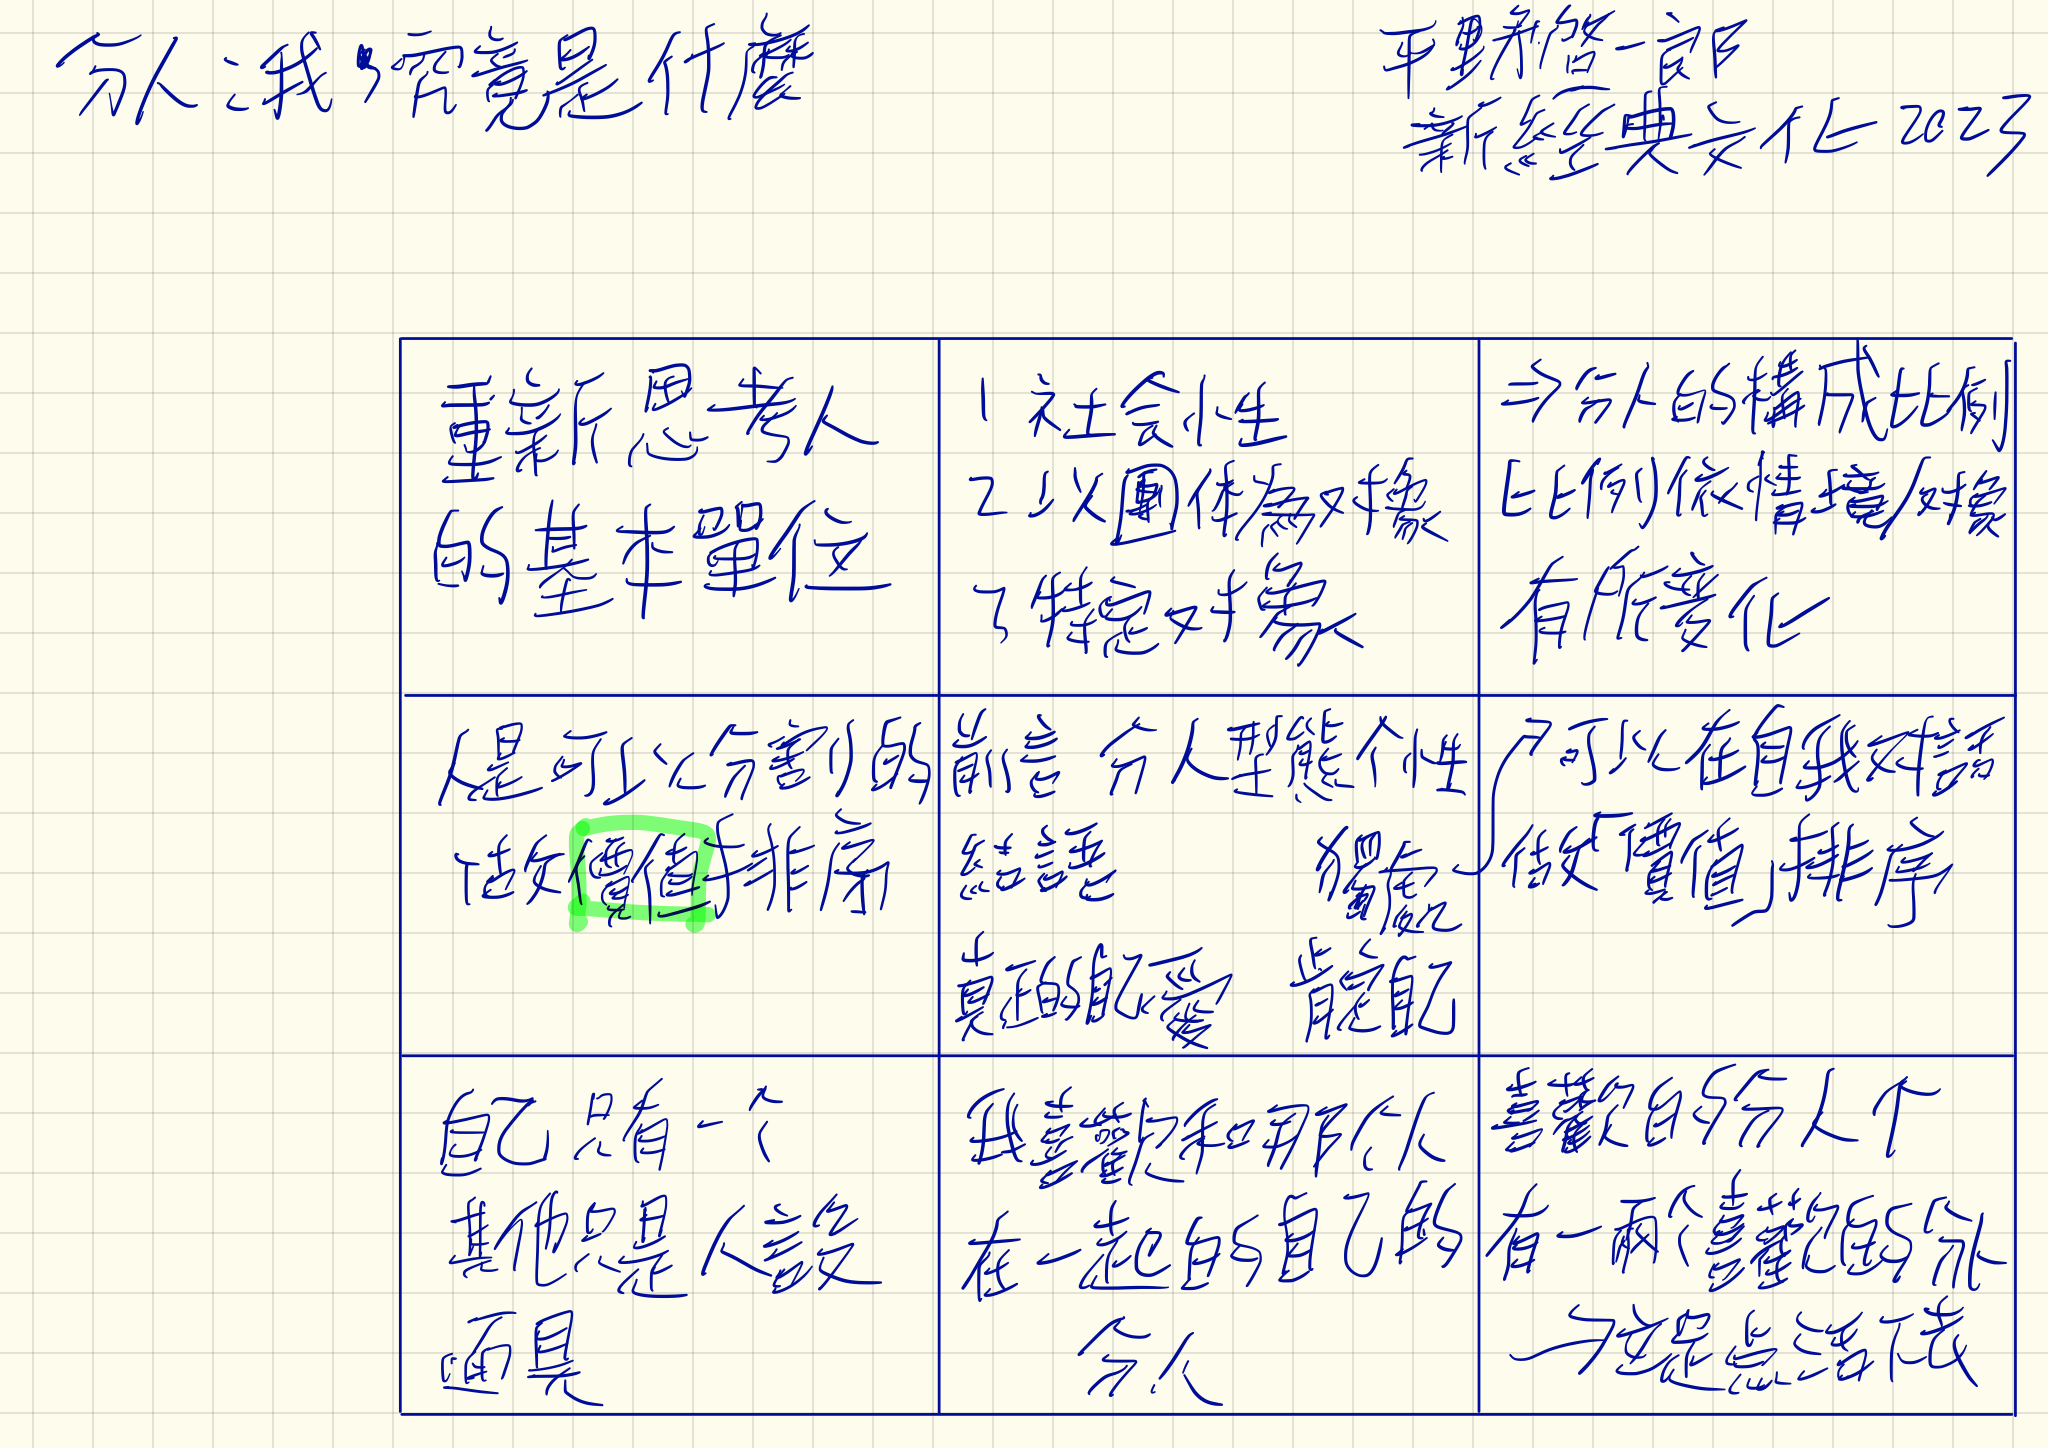 分人：我，究竟是什麼
平野啓一郎
新經典文化 2023
重新思考人
的基本單位
1 社会性
2 以團体為对象
3 特定对象
⇒分人的構成比例
比例依情境/对象
有所变化
人是可以分割的
估攵價值排序
前言 分人型態个性
結語
真正的自己愛 肯定自己
↗可以在自我对話
做「價值」排序
自己只有一个
其他只是人設
面具
我喜歡和那个人
在一起的自己的
分人
喜歡的分人个
有一兩个喜歡的分人
→立足点活下去